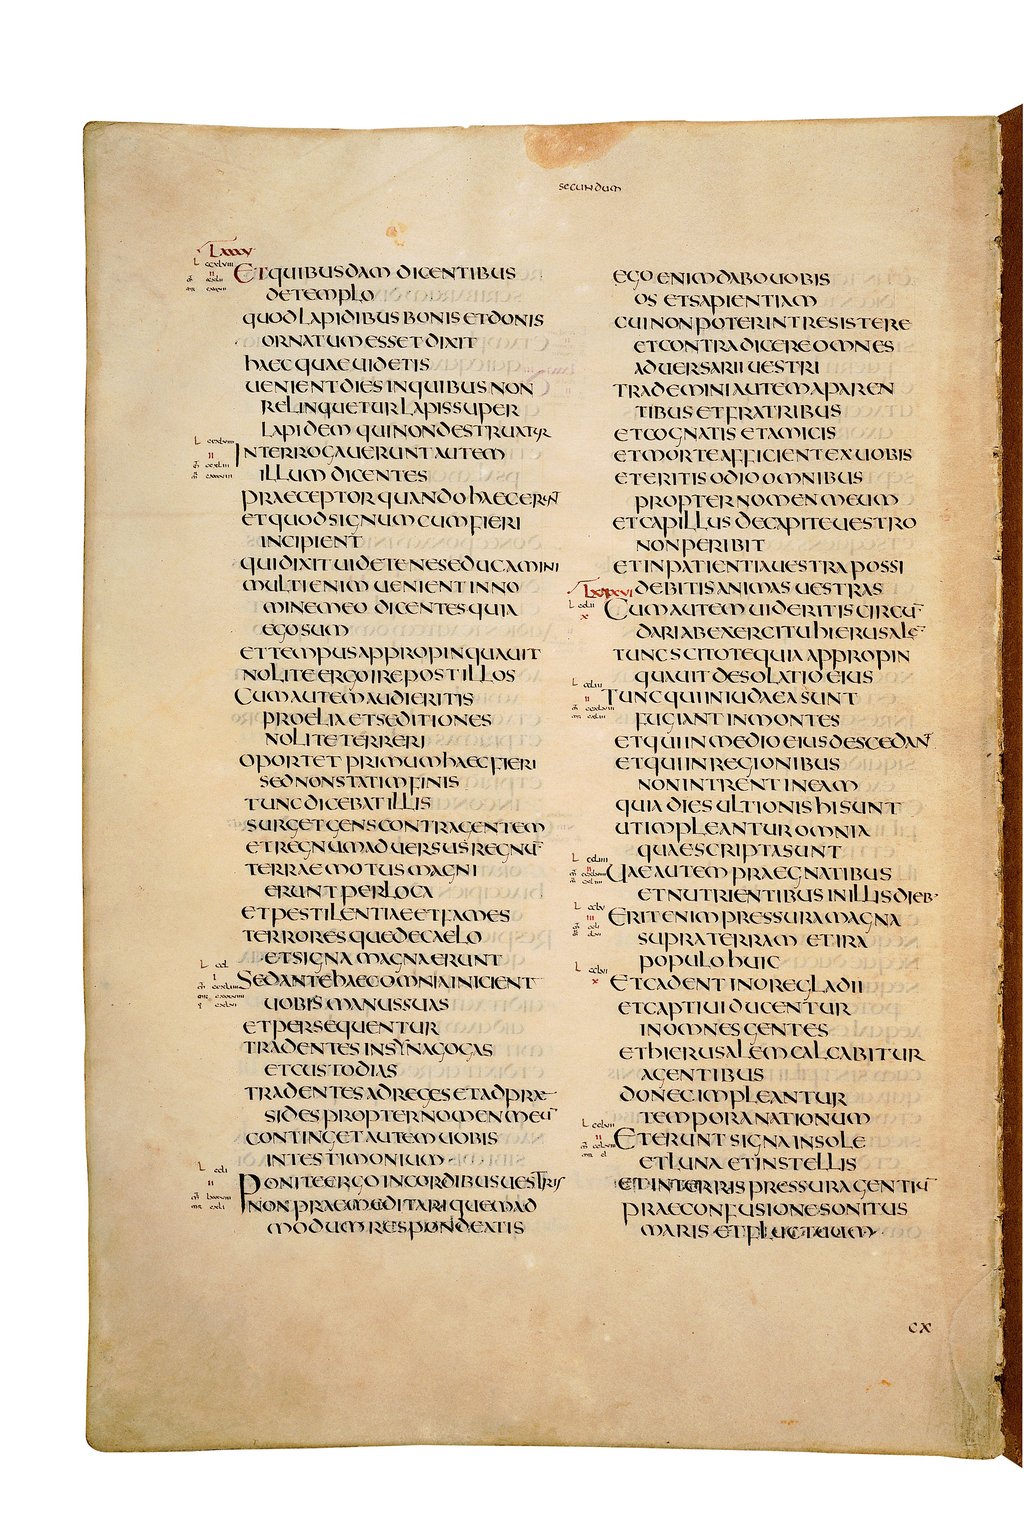 secundum
Lxxxv
L ccxlviii
II
ET QUIBUSDAM DICENTIBUS
DE TEMPLO
QUOD LAPIDIBUS BONIS ET DONIS
ORNATUM ESSET DIXIT
HAEC QUAE UIDETIS
UENIENT DIES IN QUIBUS NON
RELINQUETUR LAPIS SUPER
LAPIDEM QUI NON DESTRUATUR
L ccxlviiii
II
INTERROGAUERUNT AUTEM
ILLUM DICENTES
PRAECEPTOR QUANDO HAEC ERUNT
ET QUOD SIGNUM CUM FIERI
INCIPIENT
QUI DIXIT UIDETE NE SEDUCAMINI
MULTI ENIM UENIENT IN NO
MINE MEO DICENTES QUIA
EGO SUM
ET TEMPUS APPROPINQUAUIT
NOLITE ERGO IRE POST ILLOS
CUM AUTEM AUDIERITIS
PROELIA ET SEDITIONES
NOLITE TERRERI
OPORTET PRIMUM HAEC FIERI
SED NON STATIM FINIS
TUNC DICEBAT ILLIS
SURGET GENS CONTRA GENTEM
ET REGNUM ADUERSUS REGNŪ
TERRAE MOTUS MAGNI
ERUNT PER LOCA
ET PESTILENTIAE ET FAMES
TERRORESQUE DE CAELO
ET SIGNA MAGNA ERUNT
L ccl
I
SED ANTE HAEC OMNIA INICIENT
UOBIS MANUS SUAS
ET PERSEQUENTUR
TRADENTES IN SYNAGOGAS
ET CUSTODIAS
TRADENTES AD REGES ET AD PRAE
SIDES PROPTER NOMEN MEŪ
CONTINGET AUTEM UOBIS
IN TESTIMONIUM
L ccli
II
PONITE ERGO IN CORDIBUS UESTRIS
NON PRAEMEDITARI QUEMAD
MODUM RESPONDEATIS
EGO ENIM DABO UOBIS
OS ET SAPIENTIAM
CUI NON POTERINT RESISTERE
ET CONTRADICERE OMNES
ADUERSARII UESTRI
TRADEMINI AUTEM A PAREN
TIBUS ET FRATRIBUS
ET COGNATIS ET AMICIS
ET MORTE AFFICIENT EX UOBIS
ET ERITIS ODIO OMNIBUS
PROPTER NOMEN MEUM
ET CAPILLUS DE CAPITE UESTRO
NON PERIBIT
ET IN PATIENTIA UESTRA POSSI
DEBITIS ANIMAS UESTRAS
Lxxxvi
L cclii
x
CUM AUTEM UIDERITIS CIRCŪ
DARI AB EXERCITU HIERUSALĒ
TUNC SCITOTE QUIA APPROPIN
QUAUIT DESOLATIO EIUS
L ccliii
II
TUNC QUI IN IUDAEA SUNT
FUGIANT IN MONTES
ET QUI IN MEDIO EIUS DESCEDANT
ET QUI IN REGIONIBUS
NON INTRENT IN EAM
QUIA DIES ULTIONIS HI SUNT
UT IMPLEANTUR OMNIA
QUAE SCRIPTA SUNT
L ccliiii
II
UAE AUTEM PRAEGNATIBUS
ET NUTRIENTIBUS IN ILLIS DIEB·
L cclv
III
ERIT ENIM PRESSURA MAGNA
SUPRA TERRAM ET IRA
POPULO HUIC
L cclvi
x
ET CADENT IN ORE GLADII
ET CAPTIUI DUCENTUR
IN OMNES GENTES
ET HIERUSALEM CALCABITUR
A GENTIBUS
DONEC IMPLEANTUR
TEMPORA NATIONUM
L cclvii
II
ET ERUNT SIGNA IN SOLE
ET LUNA ET IN STELLIS
ET IN TERRIS PRESSURA GENTIŪ
PRAE CONFUSIONE SONITUS
MARIS ET FLUCTUUM
CX